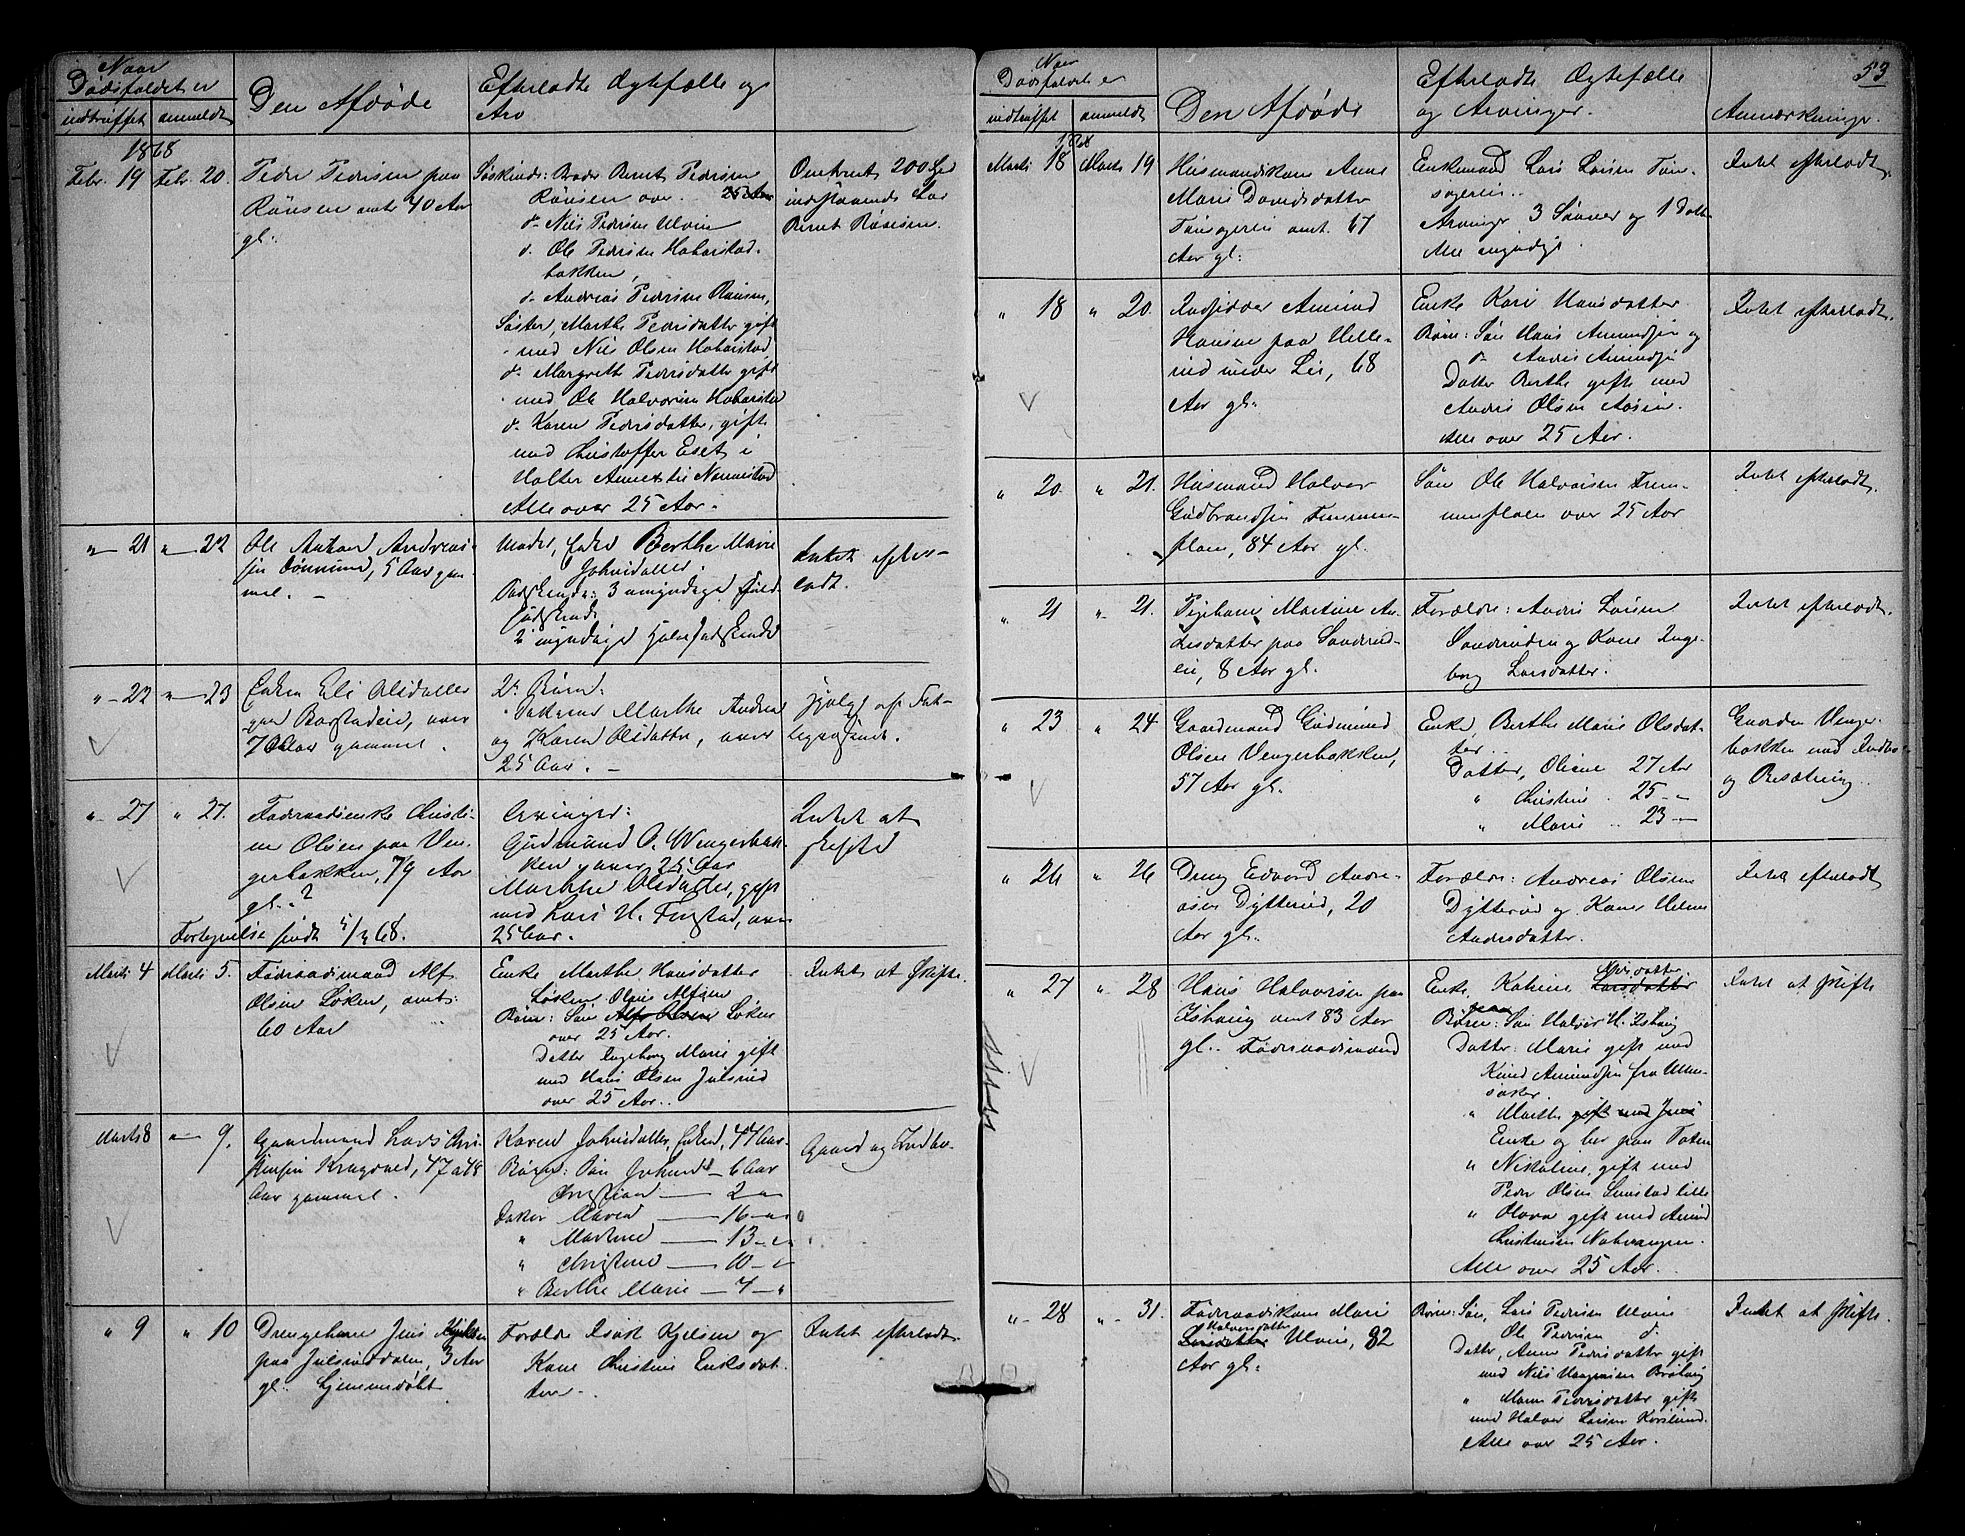 Naar
Dødsfaldet er
indtruffet
anmeldt
Den Afdøde
Efterladte Ægtefælle og
Arv
1868
Febr. 19
Febr. 20.
Peder Pedersen paa
Rønsen omtr 40 Aar
gl.
Søskinde: Broder Bernt Pedersen
Rönsen over 25 Aar
do Niels Pedersen Ulvin
do Ole Pedersen Habarstad-
bakken,
do Andreas Pedersen Rönsen,
Søster, Marthe Pedersdatter gift
med Nils Olsen Habarstad,
do Margrethe Pedersdatter gift
med Ole Halvorsen Habarstad
do Karen Pedersdatter, gift
med Christoffer Eset i
Holter Annex til Nannestad
Alle over 25 Aar.
Omtrent 200 Spd
indestaaende hos
Bernt Rönsen.
" 21
" 22
Ole Anton Andreas-
sen Tønnerud, 5 Aar gam-
mel. —
Moder, Enke Berthe Marie
Johnsdatter.
Sødskende: 3 umyndige Hel-
sødskend.
2 myndige Halvsødskende
Intet efter-
ladt.
" 22
" 23
Enken Eli Olsdatter
paa Borstadeie, over
70 Aar gammel.
2de Börn:
Døttrene Marthe Andrea
og Karen Olsdatter, over
25 Aar. —
hjulpet af Fat-
tigvæsenet.
" 27
" 27.
Föderaadsenke Christi-
ne Olsen paa Ven-
gerbakken, 79 Aar
gl. ?
Fortegnelse sendt 5/3 68.
Arvinger:
Gudmund O. Wengerbak-
ken gaver 25 Aar
Marthe Olsdatter, gift
med Lars H. Fingstad, over
25 Aar.
Intet at
skifte
Marts 4
Marts 5.
Föderaadsmand Alf
Olsen Løken, omtr.
60 Aar
Enke Marthe Hansdatter
Løken. Olaus Alfsen
Børn: Søn Alf Olsen Løken
over 25 Aar.
Datter Ingeborg Marie gift
med Hans Olsen Julsrud
over 25 Aar..
Intet at skifte.
Marts 8
" 9.
Gaardmand Lars Chri-
stensen Krogsrud, 47 a 48
Aar gammel.
Karen Johnsdatter, Enke, 47 Aar.
Børn: Søn Johan — 6 Aar
Christian — 2 —
Døtre Maren — 16 —
" Martine — 13 —
" Christine — 10 —
" Berthe Marie — 7 — "
Gaard og Indbo.
" 9
" 10
Drengebarn Jens Kjelsen
paa Julsruddalen, 3 Aar
gl. hjemmedøbt
Forældre Isak Kjelsen og
Kone Christine Eriksdat-
ter.
Intet efterladt.
53
Naar
Dødsfaldet er
indtruffet
anmeldt
Den Afdøde
Efterladte Ægtefælle
og Arvinger.
Anmærkninger.
1868
Marts 18
Marts 19
Husmandskone Anne
Marie Davidsdatter
Tönsagereie omt. 67
Aar gl:
Enkemand Lars Larsen Tön-
sagereie..
Arvinger 3 Sønner og 1 Datter
Alle myndige.
Intet efterladt.
" 18
" 20.
Indsidder Amund
Hansen paa Helle-
rud under Lie, 68
Aar gl.
Enke Kari Hansdatter
Børn: Søn Hans Amundsen og
do Anders Amundsen
Datter Berthe gift med
Anders Olsen Aasen.
Alle over 25 Aar.
Intet efterladt.
" 20.
" 21.
Husmand Halvor
Gudbrandsen Fremmen-
plads, 84 Aar gl.
Søn Ole Halvorsen Frem-
menplads over 25 Aar
Intet efterladt.
" 21
" 21.
Pigebarn Martine An-
dersdatter paa Sanderud-
eie, 8 Aar gl.
Forældre: Anders Larsen
Sanderudeie og Kone Inge-
borg Larsdatter.
Intet efterladt.
" 23
" 24
Gaardmand Gudmund
Olsen Vengerbakken,
57 Aar gl.
Enke, Berthe Marie Olsdat-
ter.
Datter, Oline 27 Aar
" Christine . 25 — "
" Marie .. 23 —
Gaarden Venger-
bakken med Indbo
og Besætning.
" 26
" 26
Dreng Edvard Andre-
asen Dytterud, 20
Aar gl.
Forældre: Andreas Olsen
Dytterud og Kone Helene
Andersdatter.
Intet efterladt
" 27
" 28
Hans Halvorsen paa
Ishoug omt 83 Aar
gl. Föderaadsmand
Enke, Kathrine Larsdatter
Børn: Søn Halvor H. Ishoug
Datter: Marie gift med
Knud Amundsen fra Ullen-
saker.
" Marthe gift med Jens
Enke og bor paa Toten
" Nikoline, gift med
Peder Olsen Smestad lille
" Olava gift med Amund
Christensen Nabvangen.
Alle over 25 Aar.
Intet at skifte
" 28
" 31.
Föderaadskone Mari
Halvorsdatter
Larsdatter Ulvin, 82
Aar gl.
Børn: Søn, Lars Pedersen Ulvin
Ole Pedersen do.
Datter, Anne Pedersdatter gift
med Nils Haagensen
" Maren Pedersdatter gift
med Halvor Larsen Korslund.
Alle over 25 Aar.
Intet at skifte.